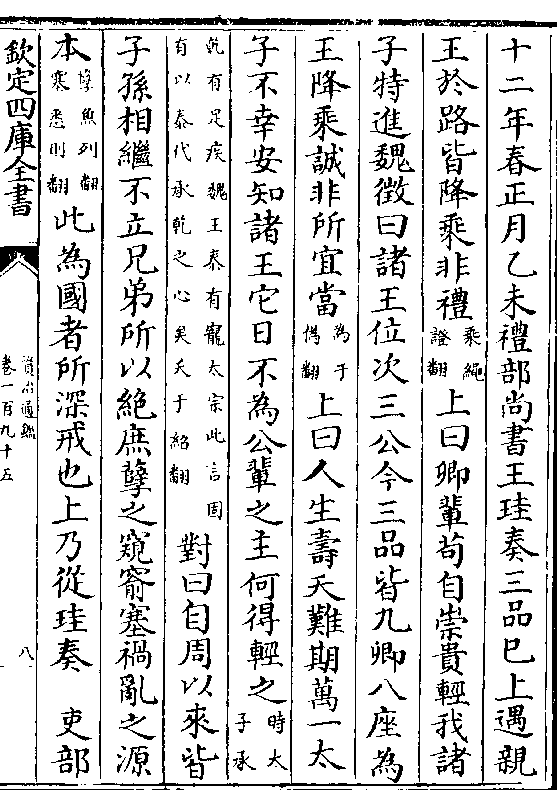 十二年春正月乙未禮部尚書王珪奏三品已上遇親
王於路皆降乘非禮乘繩證翻上曰卿輩苟自崇貴輕我諸
子特進魏徵曰諸王位次三公今三品皆九卿八座為
王降乘誠非所宜當為于偽翻上曰人生壽夭難期萬一太
子不幸安知諸王它日不為公輩之主何得輕之時太子承
乾有足疾魏王泰有寵太宗此言固有以泰代承乾之心矣夭于紹翻對曰自周以來皆
子孫相繼不立兄弟所以絶庶孽之窺窬塞禍亂之源
本孽魚列翻塞悉則翻此為國者所深戒也上乃從珪奏　吏部
欽定四庫全書
資治通鑑
卷一百九十五
八